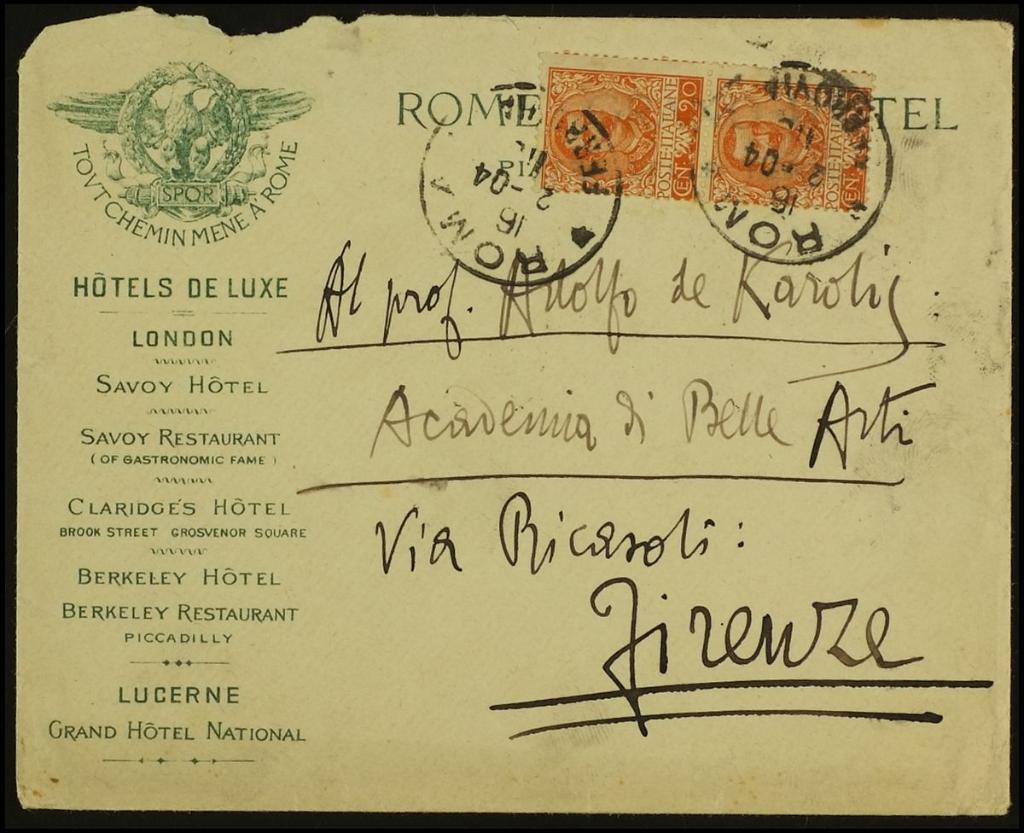 TOVT CHEMIN MENE A ROME
SPQR
HÔTELS DE LUXE
LONDON
SAVOY HÔTEL
SAVOY RESTAURANT
(OF GASTRONOMIC FAME)
CLARIDGE'S HÔTEL
BROOK STREET GROSVENOR SQUARE
BERKELEY HÔTEL
BERKELEY RESTAURANT
PICCADILLY
LUCERNE
GRAND HÔTEL NATIONAL
ROME TEL
POSTE ITALIANE
CEN. 20
POSTE ITALIANE
CEN. 20
ROMA
16
2 -04
FERROVIA
ROMA
16
2 -04
Al prof. Adolfo de Karolis.
Academia di Belle Arti
Via Ricasoli:
Firenze